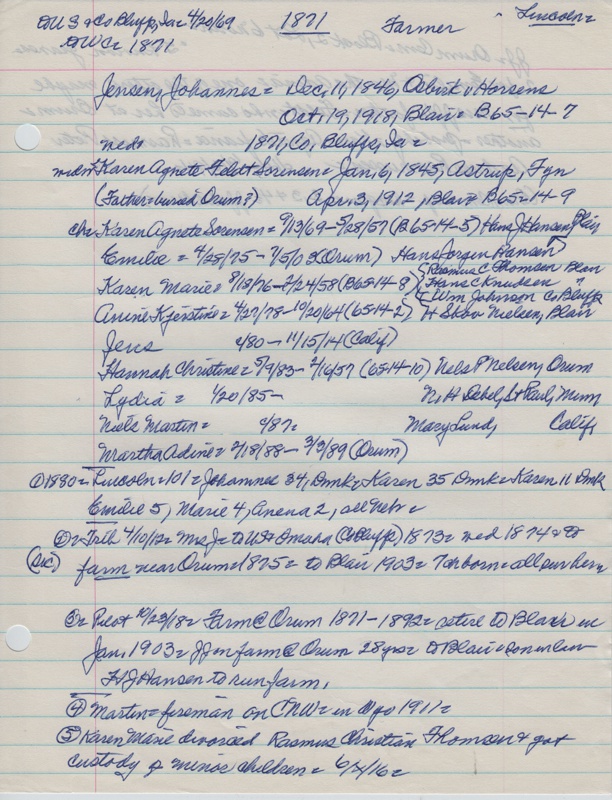 to US = Co Bluffs, Ia = 4/20/69 1871 Farmer Lincoln =
to WC = 1871
Jensen, Johannes = Dec, 11, 1846, Osbirk v Horsens
Oct, 19, 1918, Blair = B65-14-7
wed = 1871, Co, Bluffs, Ia =
Karen Agnete Feldtt Sorensen = Jan, 6, 1845, Astrup, Fyn
(Father = buried Orum?) Apr, 3, 1912, Blair B65=14-9
ch = Karen Agnete Sorensen = 9/13/69 - 5/28/57 (B65-14-5) Hans J Hansen, Blair
Emilie = 4/25/75 - 7/5/02 (Orum) Hans Jorgen Hansen
Karen Marie = 8/18/76 - 2/24/58 (B65-14-8) { Rasmus C Thomsen Blair
Hans C Knudsen ?
Wm Johnson Co Bluffs
Anine Kjerstine = 4/27/78 - 10/20/64 (65-14-2) H Skov Nielsen, Blair
Jens 4/80 - 11/15/14 (Calif)
Hannah Christine = 5/9/83 - 2/16/57 (65-14-10) Nels P Nelsen, Orum
Lydia = 1/20/85 - N, H Debel, St Paul, Minn
Niels Martin = 4/87 = Mary Lund, Calif,
Martha Adine = 2/18/88 - 3/3/89 (Orum)
① 1880 = Lincoln = 101 = Johannes 34, Dmk = Karen 35 Dmk = Karen 11 Dmk
Emilie 5, Marie 4, Anena 2, all Neb =
② = Trib 4/10/12 = Mrs J = to US = Omaha (Co Bluffs) 1873 = wed 1874 = to
(sic) farm near Orum = 1875 = to Blair 1903 = 7 ch born = all survive
③ = Pilot 10/23/18 = Farm @ Orum 1871 - 1892 = retire to Blair in
Jan, 1903 = JJ on farm @ Orum 28 yrs = to Blair = son in law
H J Hansen to run farm,
④ Martin = foreman on CNW = in Wyo 1911 =
⑤ Karen Marie divorced Rasmus Christian Thomsen & got
custody of minor children = 6/7/16 =